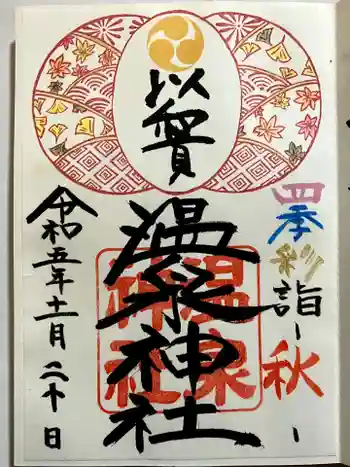 四季彩詣〜秋〜
以
温泉神社
温泉神社
令和五年十一月二十日